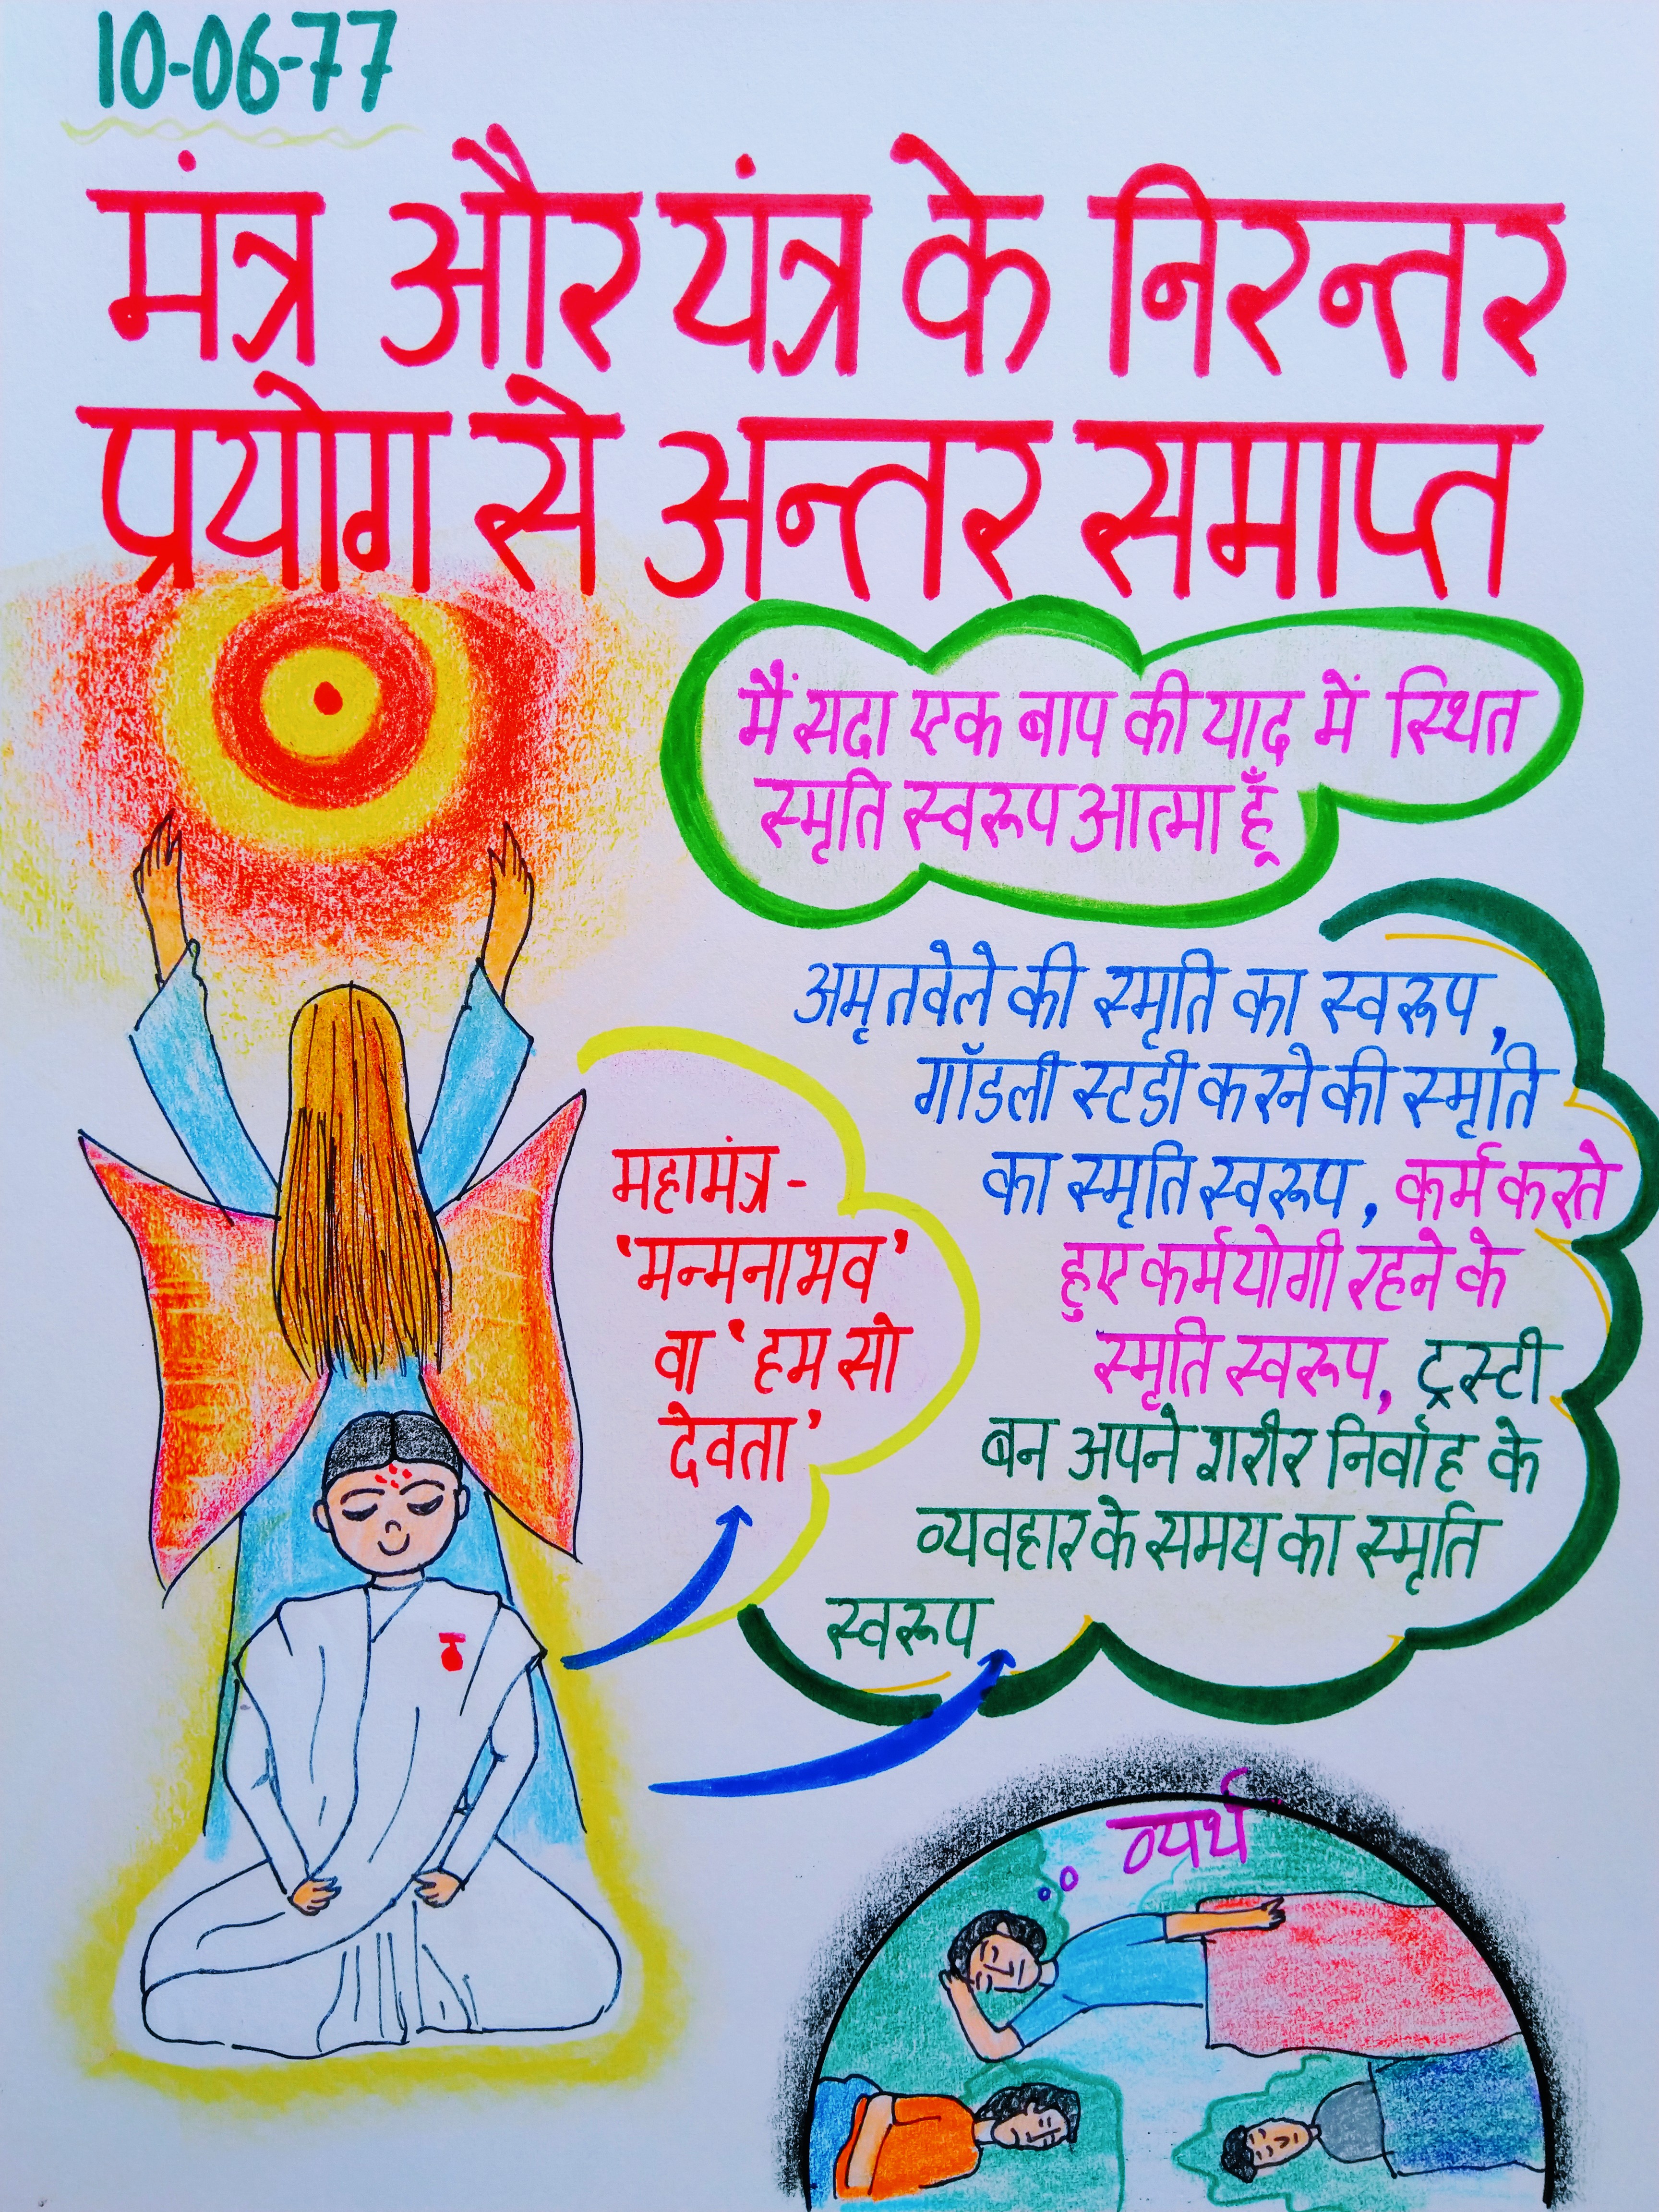 10-06-77
मंत्र और यंत्र के निरन्तर
प्रयोग से अन्तर समाप्त
मैं सदा एक बाप की याद में स्थित
स्मृति स्वरूप आत्मा हूँ
अमृतवेले की स्मृति का स्वरूप,
गॉडली स्टडी करने की स्मृति
का स्मृति स्वरूप, कर्म करते
हुए कर्मयोगी रहने के
स्मृति स्वरूप, ट्रस्टी
बन अपने शरीर निर्वाह के
व्यवहार के समय का स्मृति
स्वरूप
महामंत्र -
'मन्मनाभव'
वा 'हम सो
देवता'
व्यर्थ